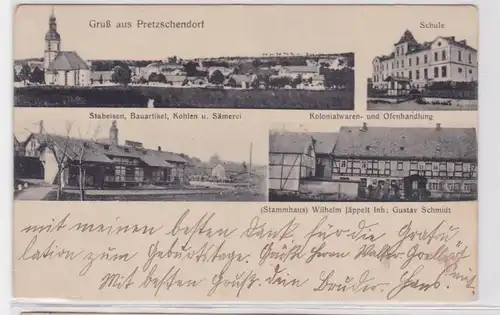 Gruß aus Pretzschendorf
Schule
Stabeisen, Bauartikel, Kohlen u. Sämerei
Kolonialwaren- und Ofenhandlung
(Stammhaus) Wilhelm Jäppelt Inh.: Gustav Schmidt
mit meinen besten Dank für die Gratu
lation zum Geburtstage. Grüße Herrn Walter
Mit besten Gruß dein Bruder Hans.